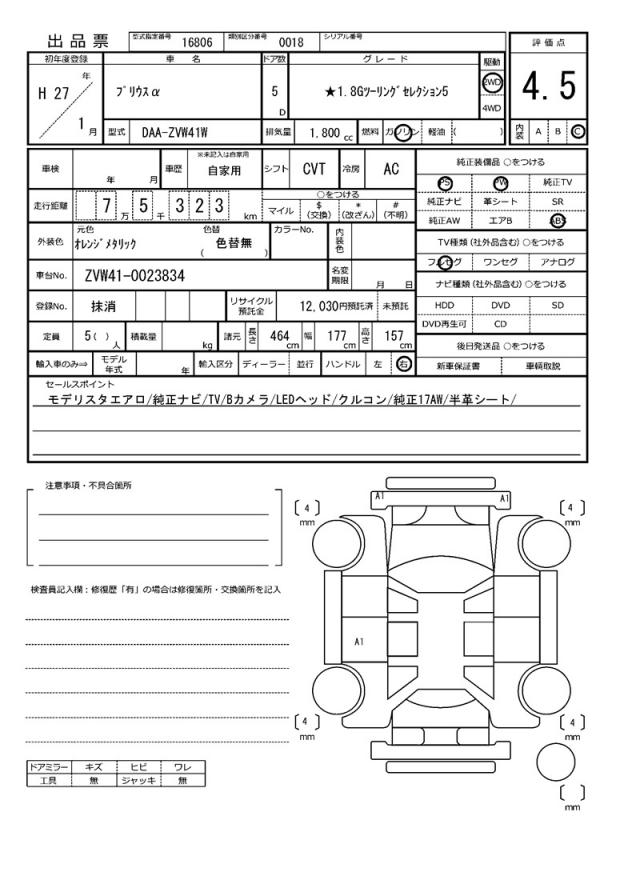 出品票 型式指定番号 16806 類別区分番号 0018 シリアル番号
評価点
4.5
内装 A B C
初年度登録 車名 ドア数 グレード 駆動
H 27 年 1 月
プリウスα
5 D
★1.8Gツーリングセレクション5
2WD
4WD
型式 DAA-ZVW41W 排気量 1.800 cc 燃料 ガソリン 軽油 ( )
車検 年 月 車歴 ※未記入は自家用 自家用 シフト CVT 冷房 AC
走行距離 7 万 5 千 3 2 3 km
○をつける
マイル $(交換) *(改ざん) #(不明)
外装色 元色 オレンジメタリック 色替 ( 色替無 ) カラーNo. 内装色
車台No. ZVW41-0023834 名変期限 月 日
登録No. 抹消 リサイクル預託金 12,030円預託済 未預託
定員 5( ) 人 積載量 kg 諸元 長さ 464 cm 幅 177 cm 高さ 157 cm
輸入車のみ⇒ モデル年式 年 輸入区分 ディーラー 並行 ハンドル 左 右
純正装備品 ○をつける
PS PW 純正TV
純正ナビ 革シート SR
純正AW エアB ABS
TV種類(社外品含む)○をつける
フルセグ ワンセグ アナログ
ナビ種類(社外品含む)○をつける
HDD DVD SD
DVD再生可 CD
後日発送品 ○をつける
新車保証書 車輌取説
セールスポイント
モデリスタエアロ/純正ナビ/TV/Bカメラ/LEDヘッド/クルコン/純正17AW/半革シート/
注意事項・不具合箇所
検査員記入欄:修復歴「有」の場合は修復箇所・交換箇所を記入
ドアミラー キズ ヒビ ワレ
工具 無 ジャッキ 無
A1 A1
[ 4 ] mm [ 4 ] mm
A1
[ 4 ] mm [ 4 ] mm
[ ] mm